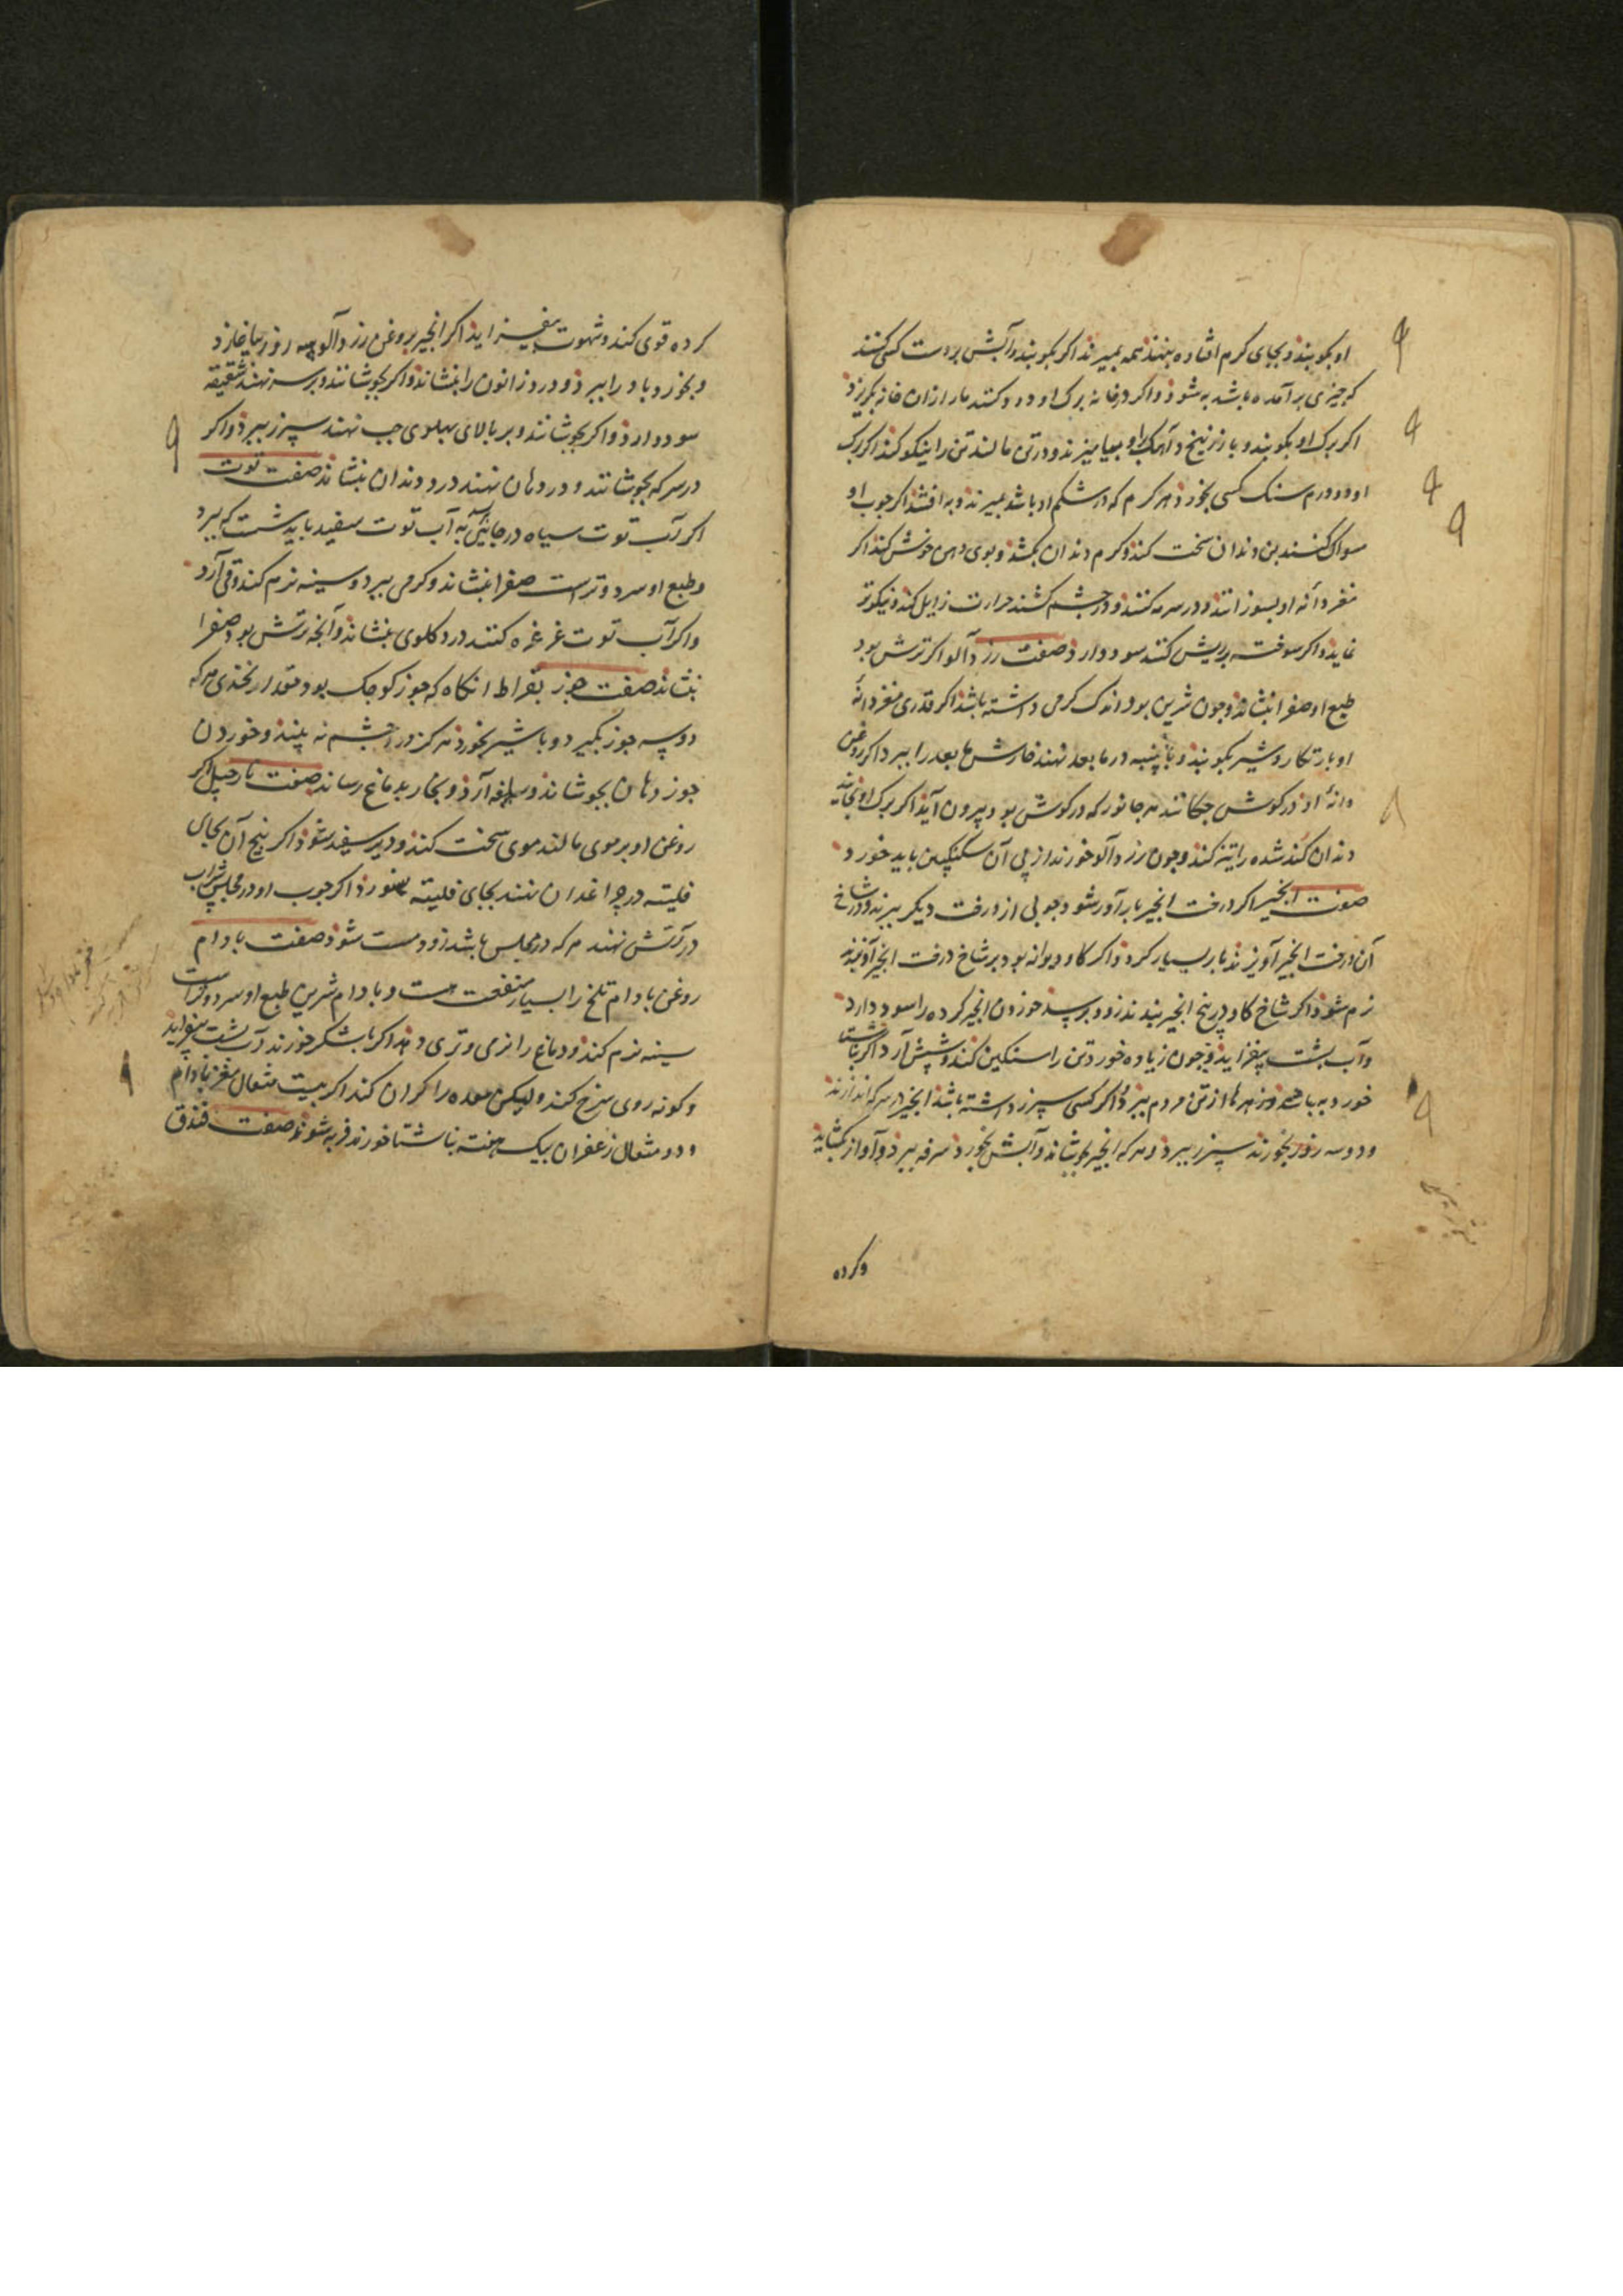 او بکوبند و بجای کرم افتاده بنهند همه بمیرند اکر بکوبند و آبش بر دست کسی کنند
که چیزی برآمده باشد به شود و اکر در خانه برک او دود کنند مار ازان خانه بکریزد
اکر برک او بکوبند و با زرنیخ و آهک بیامیزند و در تن مالند تن را نیکو کند اکر برک
او دو درم سنک کسی بخورد هر کرم که در شکم او باشد بمیرند و بدر افتد اکر چوب او
مسواک کنند بن دندان سخت کند و کرم دندان بکشد و بوی دهن خوش کند اکر
مغز دانه او بسوزانند و در سرمه کنند و در چشم کشند حرارت زایل کند و نیکوتر
نماید و اکر سوخته بر ریش کنند سود دارد صفت زردآلو اکر ترش بود
طبع او صفرا بنشاند و چون شرین بود اندک کرمی داشته باشد اکر قدری مغز دانه
او با شیر بکوبند و با پنبه در نهند خارش را ببرد اکر روغن
دانه او در کوش چکانند هر جانور که در کوش بود بیرون آید اکر برک او بخایند
دندان کند شده را تیز کند و چون زردآلو خورند از پی آن سکنکبین باید خورد
صفت انجیر اکر درخت انجیر بارآور نشود چوبی از درخت دیکر ببرند و در شاخ
آن درخت انجیر آویزند بار بسیار کرد و اکر کاو دیوانه بود بر شاخ درخت انجیر آویزند
نرم شود اکر شاخ کاو در بیخ انجیر بنهند زود برسد خوردن انجیر کرده را سود دارد
و آب پشت بیفزاید و چون زیاده خورد تن را سنکین کند و شپش آرد اکر ناشتا
خورد به باشد و زهرها از تن مردم ببرد و اکر کسی سپرز داشته باشد انجیر در سرکه اندازند
و دو سه روز بخورند سپرز ببرد و هر که انجیر بجوشاند و آبش بخورد سرفه ببرد و آواز بکشاید
و کرده
کرده قوی کند و شهوت بیفزاید اکر انجیر بروغن زردآلو سه روز بیاغارد
و بخورد باد را ببرد و درد زانون را بنشاند و اکر بجوشانند و بر سر نهند شقیقه
سود دارد و اکر بجوشانند و بر بالای پهلوی چپ نهند سپرز ببرد و اکر
در سرکه بجوشانند و در دهان نهند درد دندان بنشاند صفت توت
اکر آب توت سیاه در جائی به آب توت سفید باید شست که ببرد
و طبع او سرد و تر است صفرا بنشاند و کرمی ببرد و سینه نرم کند و قی آرد
و اکر آب توت غرغره کنند درد کلوی بنشاند و آنچه ترش بود صفرا
بنشاند صفت جوز بقراط انکاه که جوز کوچک بود مقدار نخدی هر که
دو سه جوز بکیرد و با شیر بخورد هرکز درد چشم نه بیند و خوردن
جوز دهان بجوشاند و سرفه آرد و بخار بدماغ رساند صفت نارجیل اکر
روغن او بر موی مالند موی سخت کند و دیر سفید شود اکر بیخ آن بجای
فلیته در چراغدان نهند بجای فلیته بسوزد اکر چوب او در مجلس شراب
در آتش نهند هر که در مجلس باشد زود مست شود صفت بادام
روغن بادام تلخ را بسیار منفعت است و بادام شرین طبع او سرد و تر است
سینه نرم کند و دماغ را نرمی و تری دهد اکر با شکر خورند آب پشت بیفزاید
و کونه روی سرخ کند ولیکن معده را کران کند اکر بیست مثقال مغز بادام
و دو مثقال زعفران بیک هفته بناشتا خورند فربه شوند صفت فندق